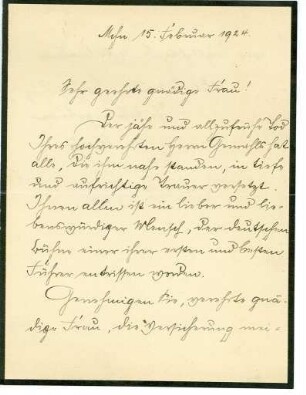 Mchn. 15. Februar 1924.
Sehr geehrte gnädige Frau!
Der jähe und allzufrühe Tod
Ihres hochverehrten Herrn Gemahls hat
alle, die ihm nahe standen, in tiefe
und aufrichtige Trauer versetzt.
Ihnen allen ist ein lieber und lie-
benswürdiger Mensch, der deutschen
Bühne einer ihrer ersten und besten
Führer entrissen worden.
Genehmigen Sie, verehrte gnä-
dige Frau, die Versicherung mei-